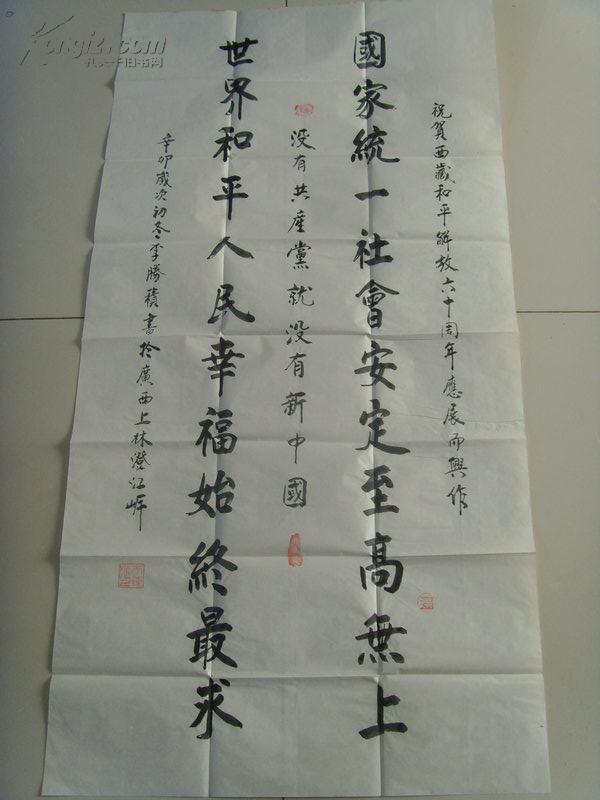 祝賀西藏和平解放六十周年應展而興作
國家統一社會安定至高無上
没有共産黨就没有新中國
世界和平人民幸福始終最求
辛卯歲次初冬李勝積書於廣西上林澄江岸
Kongfz.com
孔夫子旧书网